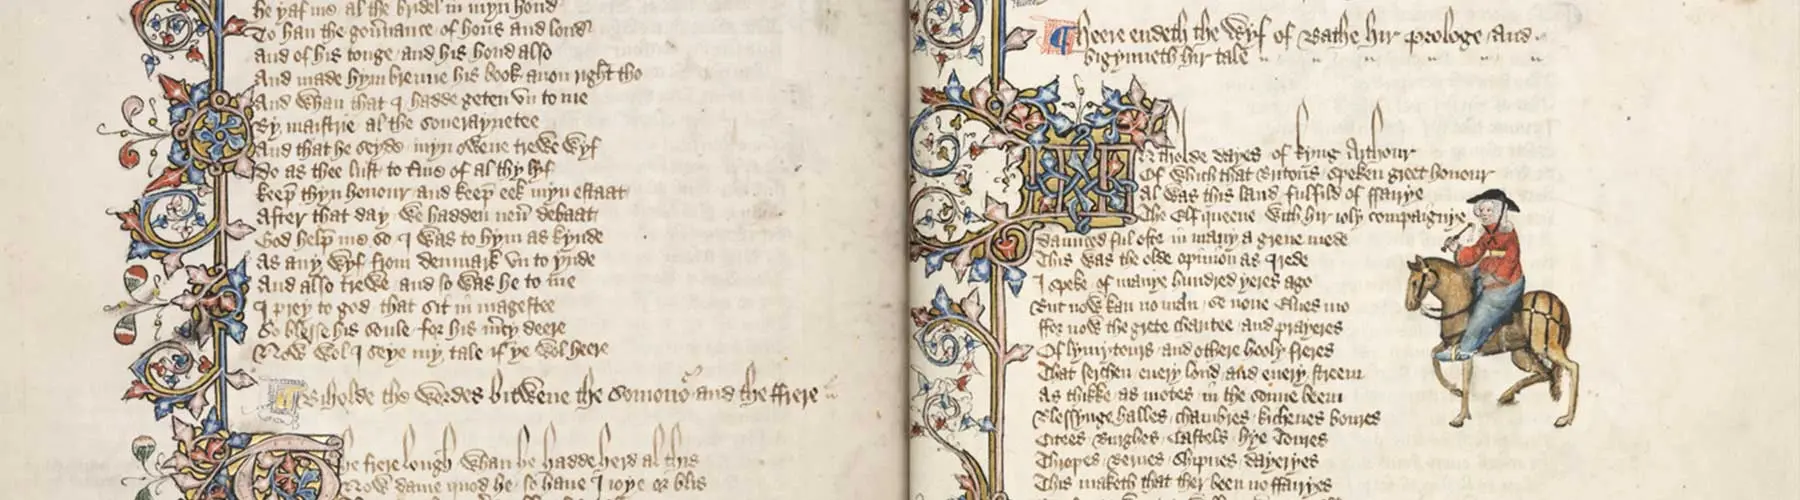 he yaf me al the bridel in myn hond
To han the gouernance of hous and lond
And of his tonge and his hond also
And made hym brenne his book anon right tho
And whan that I hadde geten vn to me
By maistrie al the souerayntee
And that he seyde myn owene trewe wyf
Do as thee lust to terme of al thy lyf
Keep thyn honour and keep eek myn estaat
After that day we hadden neuer debaat
God help me so I was to hym as kynde
As any wyf from Denmark vn to ynde
And also trewe and so was he to me
I prey to god that sit in magestee
So blesse his soule for his mercy deere
Now wol I seye my tale if ye wol heere
Biholde the wordes bitwene the Somonour and the ffrere
The frere lough whan he hadde herd al this
Now dame quod he so haue I ioye or blis
Heere endeth the Wyf of Bathe hir prologe and
bigynneth hir tale
In tholde dayes of kyng Arthour
Of which that Britons speken greet honour
Al was this land fulfild of ffairye
The Elf queene with hir ioly compaignye
Daunced ful ofte in many a grene mede
This was the olde opinion as I rede
I speke of manye hundred yeres ago
But now kan no man se none Elues mo
ffor now the grete charitee and prayeres
Of lymytours and othere hooly freres
That serchen euery lond and euery streem
As thikke as motes in the sonne beem
Blessynge halles chambres kichenes boures
Citees Burghes Castels hye Toures
Thropes Bernes Shipnes Dayeryes
This maketh that ther been no ffairyes